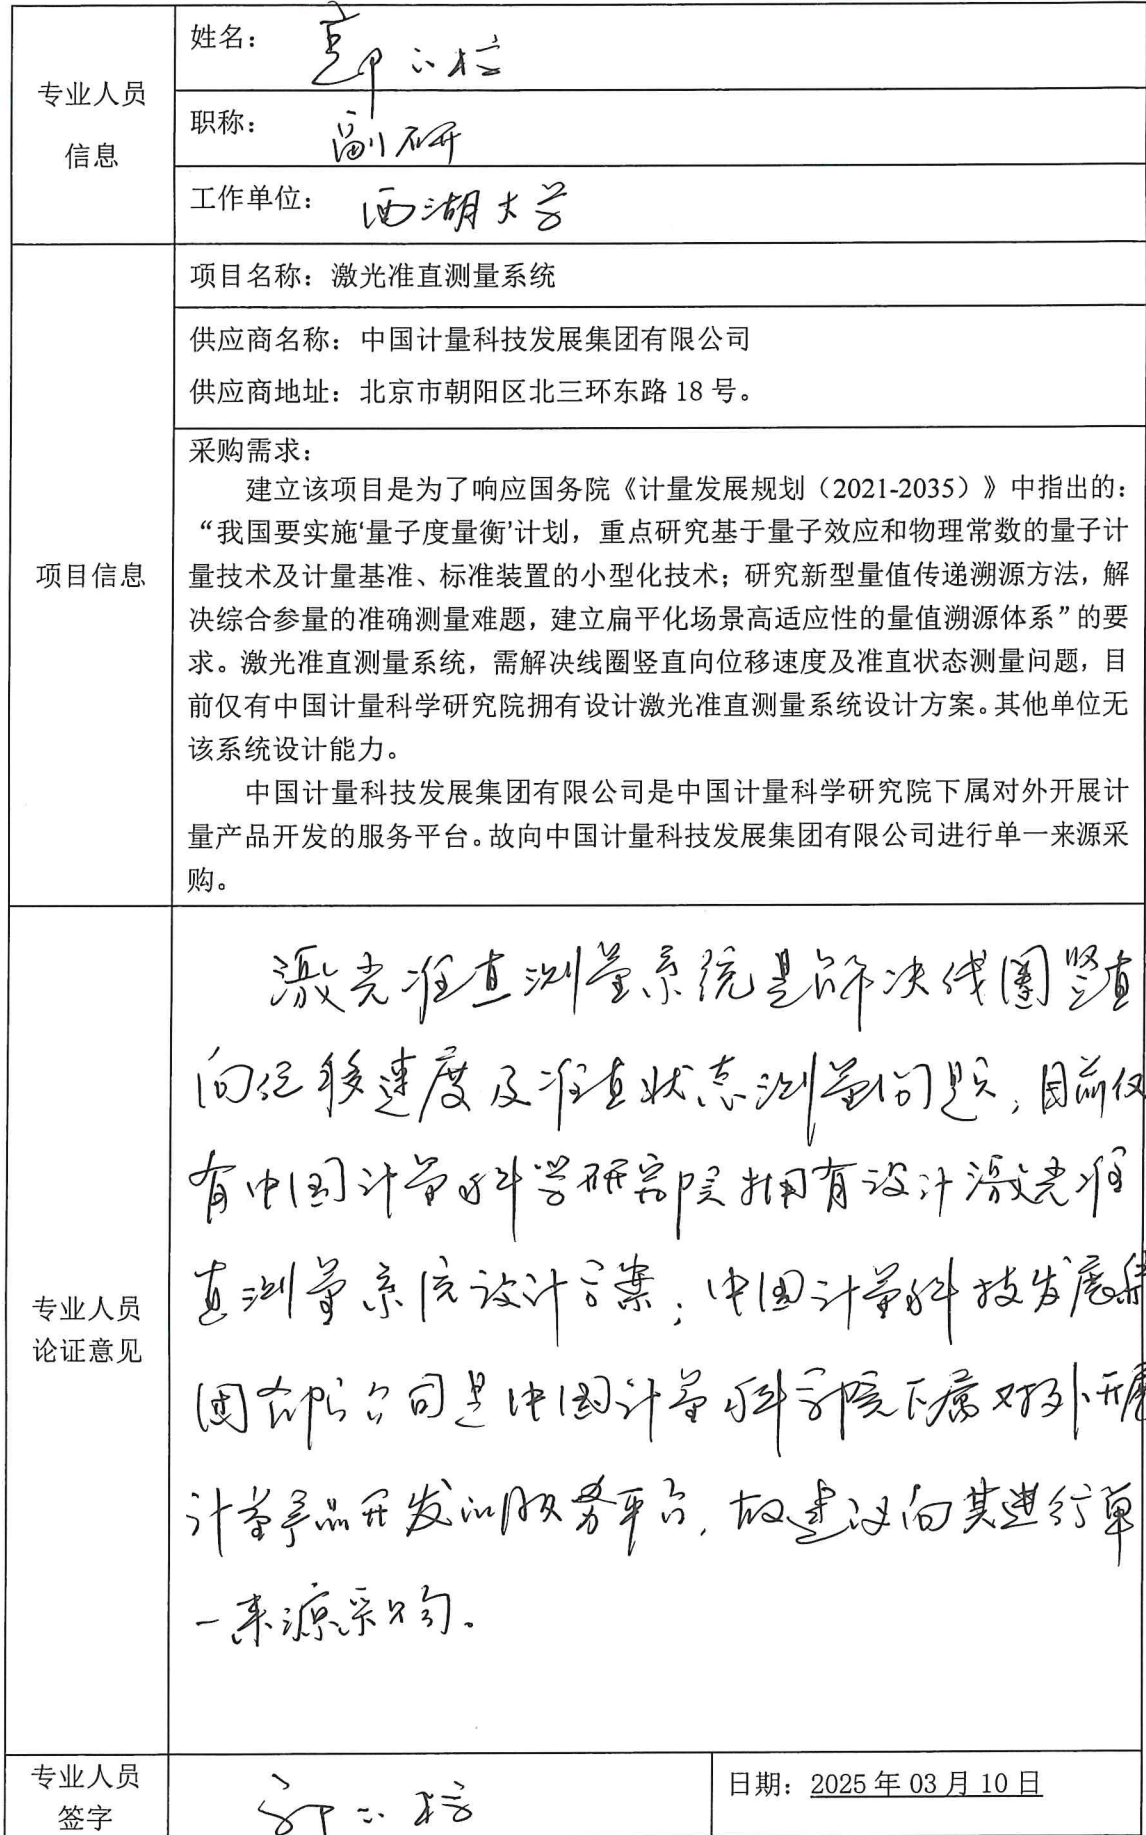 专业人员
信息
姓名：
职称： 副研
工作单位： 西湖大学
项目信息
项目名称：激光准直测量系统
供应商名称：中国计量科技发展集团有限公司
供应商地址：北京市朝阳区北三环东路 18 号。
采购需求：
建立该项目是为了响应国务院《计量发展规划（2021-2035）》中指出的：
“我国要实施‘量子度量衡’计划，重点研究基于量子效应和物理常数的量子计
量技术及计量基准、标准装置的小型化技术；研究新型量值传递溯源方法，解
决综合参量的准确测量难题，建立扁平化场景高适应性的量值溯源体系”的要
求。激光准直测量系统，需解决线圈竖直向位移速度及准直状态测量问题，目
前仅有中国计量科学研究院拥有设计激光准直测量系统设计方案。其他单位无
该系统设计能力。
中国计量科技发展集团有限公司是中国计量科学研究院下属对外开展计
量产品开发的服务平台。故向中国计量科技发展集团有限公司进行单一来源采
购。
专业人员
论证意见
激光准直测量系统是解决线圈竖直
向位移速度及准直状态测量问题，目前仅
有中国计量科学研究院拥有设计激光准
直测量系统设计方案；中国计量科技发展集
团有限公司是中国计量科学院下属对外开展
计量产品开发的服务平台，故建议向其进行单
一来源采购。
专业人员
签字
日期：2025 年 03 月 10 日